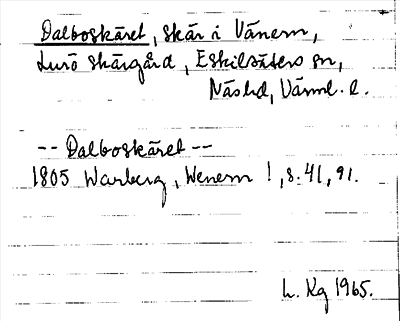 Dalboskäret, skär i Vänern,
Lurö skärgård, Eskilsäters sn,
Näs hd, Värml. l.
-- Dalboskäret --
1805 Warberg, Wenern 1, s. 41, 91.
L. Kg 1965.